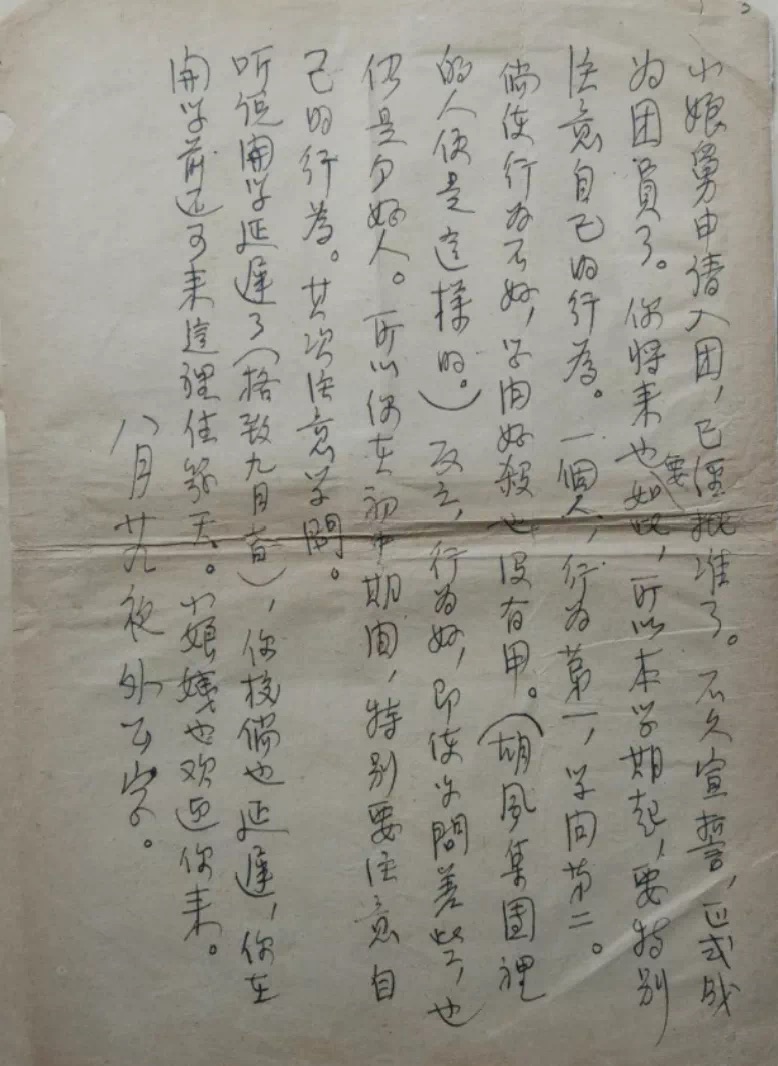 小娘舅申请入团，已经批准了。不久宣誓，正式成
为团员了。你将来也要如此，所以本学期起，要特别
注意自己的行为。一個人，行为第一，学问第二。
倘使行为不好，学问好殺也没有用。（胡风集团裡
的人便是这样的。）反之，行为好，即使学問差些，也
仍是个好人。所以你在初中期间，特别要注意自
己的行为。其次注意学問。
听说開学延遲了（格致九月），你校倘也延遲，你在
開学前还可来這裡住几天。小娘姨也欢迎你来。
八月廿九夜 外公字。